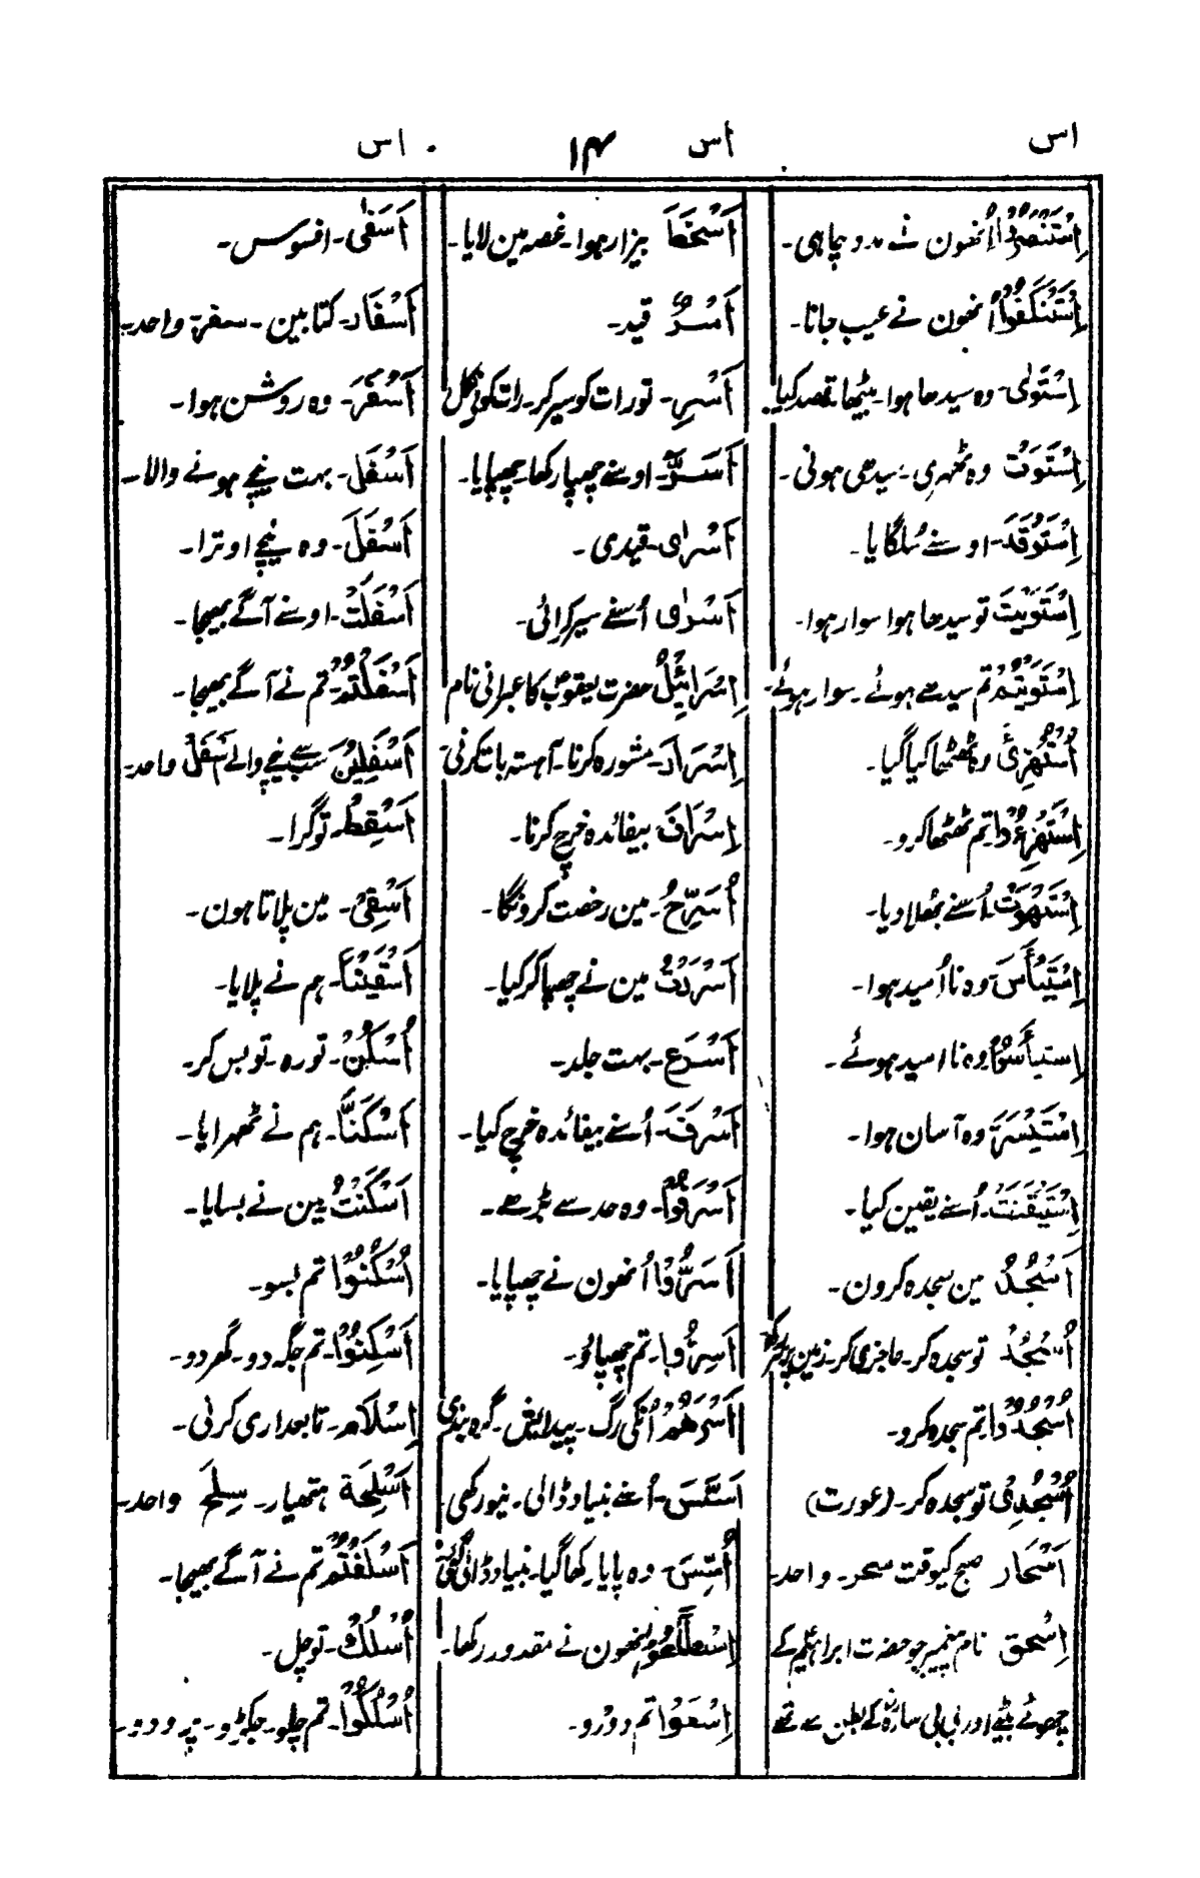 اس
اس
۱۴
اس
اِسْتَنْصَرُوْا اُنھون نے مدد چاہی۔
اِسْتَنْكَفُوْا اُنھون نے عیب جانا۔
اِسْتَوٰی۔ وہ سیدھا ہوا۔ بیٹھا۔ قصد کیا۔
اِسْتَوَتْ وہ ٹھہری۔ سیدھی ہوئی۔
اِسْتَوْقَدَ۔ اوسنے سُلگایا۔
اِسْتَوَيْتَ تو سیدھا ہوا سوار ہوا۔
اِسْتَوَيْتُمْ تم سیدھے ہوئے۔ سوار ہوئے۔
اُسْتُهْزِئَ وہ ٹھٹھا کیا گیا۔
اِسْتَهْزِءُوْا۔ تم ٹھٹھا کرو۔
اِسْتَهْوَتْ۔ اُسنے بُھلا دیا۔
اِسْتَيْأَسَ وہ نا اُمید ہوا۔
اِستيأَسُوْا وہ نا امید ہوئے۔
اِسْتَيْسَرَ وہ آسان ہوا۔
اِسْتَيْقَنَتْ۔ اُسنے یقین کیا۔
اَسْجُدُ مین سجدہ کرون۔
اُسْجُدْ تو سجدہ کر۔ عاجزی کر۔ زمین پر سر رکھ
اُسْجُدُوْا۔ تم سجدہ کرو۔
اُسْجُدِیْ تو سجدہ کر۔ (عورت)
اَسْحَار صبح کیوقت سحر۔ واحد۔
اِسْحٰق نام پیغمبر جو حضرت ابراہیم کے
چھوٹے بیٹے اور بی بی سارہ کے بطن سے تھے
اَسْخَطَ بیزار ہوا۔ غصہ مین لایا۔
اَسْرٌ قید۔
اَسْرِ۔ تو رات کو سیر کر۔ رات کو نکل
اَسَرَّ۔ اوسنے چھپا رکھا۔ چھپایا۔
اَسْرٰی۔ قیدی۔
اَسْرٰی اُسنے سیر کرائی۔
اِسْرَائِيْلُ حضرت یعقوب کا عبرانی نام
اِسْرَار۔ مشورہ کرنا۔ آہستہ بات کرنی
اِسْرَاف بیفائدہ خرچ کرنا۔
اُسَرِّحُ۔ مین رخصت کرونگا۔
اَسْرَرْتُ مین نے چھپا کر کیا۔
اَسْرَع۔ بہت جلد۔
اَسْرَفَ۔ اُسنے بیفائدہ خرچ کیا۔
اَسْرَفُوْا۔ وہ حد سے بڑھے۔
اَسَرُّوْا اُنھون نے چھپایا۔
اَسِرُّوْا۔ تم چھپاؤ۔
اَسْرَهُمْ اُنکی رگ۔ پیدایش۔ گرہ بندی
اَسَّسَ۔ اُسنے بنیاد ڈالی۔ نیو رکھی
اُسِّسَ۔ وہ پایا رکھا گیا۔ بنیاد ڈالی گئی
اِسْطَاعُوْا اُنھون نے مقدور رکھا۔
اِسْعَوْا تم دوڑو۔
اَسَفٰی۔ افسوس۔
اَسْفَار۔ کتابین۔ سفر واحد۔
اَسْفَرَ۔ وہ روشن ہوا۔
اَسْفَل۔ بہت نیچے ہونے والا۔
اَسْفَلَ۔ وہ نیچے اوترا۔
اَسْفَلَتْ۔ اوسنے آگے بھیجا۔
اَسْفَلْتُمْ۔ تم نے آگے بھیجا۔
اَسْفَلِيْنَ سب سے نیچے والے اَسْفَلْ واحد۔
اَسْقِطْ۔ تو گرا۔
اَسْقِیْ۔ مین پلاتا ہون۔
اَسْقَيْنَا۔ ہم نے پلایا۔
اُسْكُنْ۔ تو رہ۔ تو بس کر۔
اَسْكَنَّا۔ ہم نے ٹھہرایا۔
اَسْكَنْتُ مین نے بسایا۔
اُسْكُنُوْا تم بسو۔
اَسْكِنُوْا۔ تم جگہ دو۔ گھر دو۔
اِسْلَام۔ تابعداری کرنی۔
اَسْلِحَة ہتھیار۔ سِلَح واحد۔
اَسْلَفْتُمْ تم نے آگے بھیجا۔
اُسْلُكْ۔ تو چل۔
اُسْلُكُوْا۔ تم چلو۔ جکڑو۔